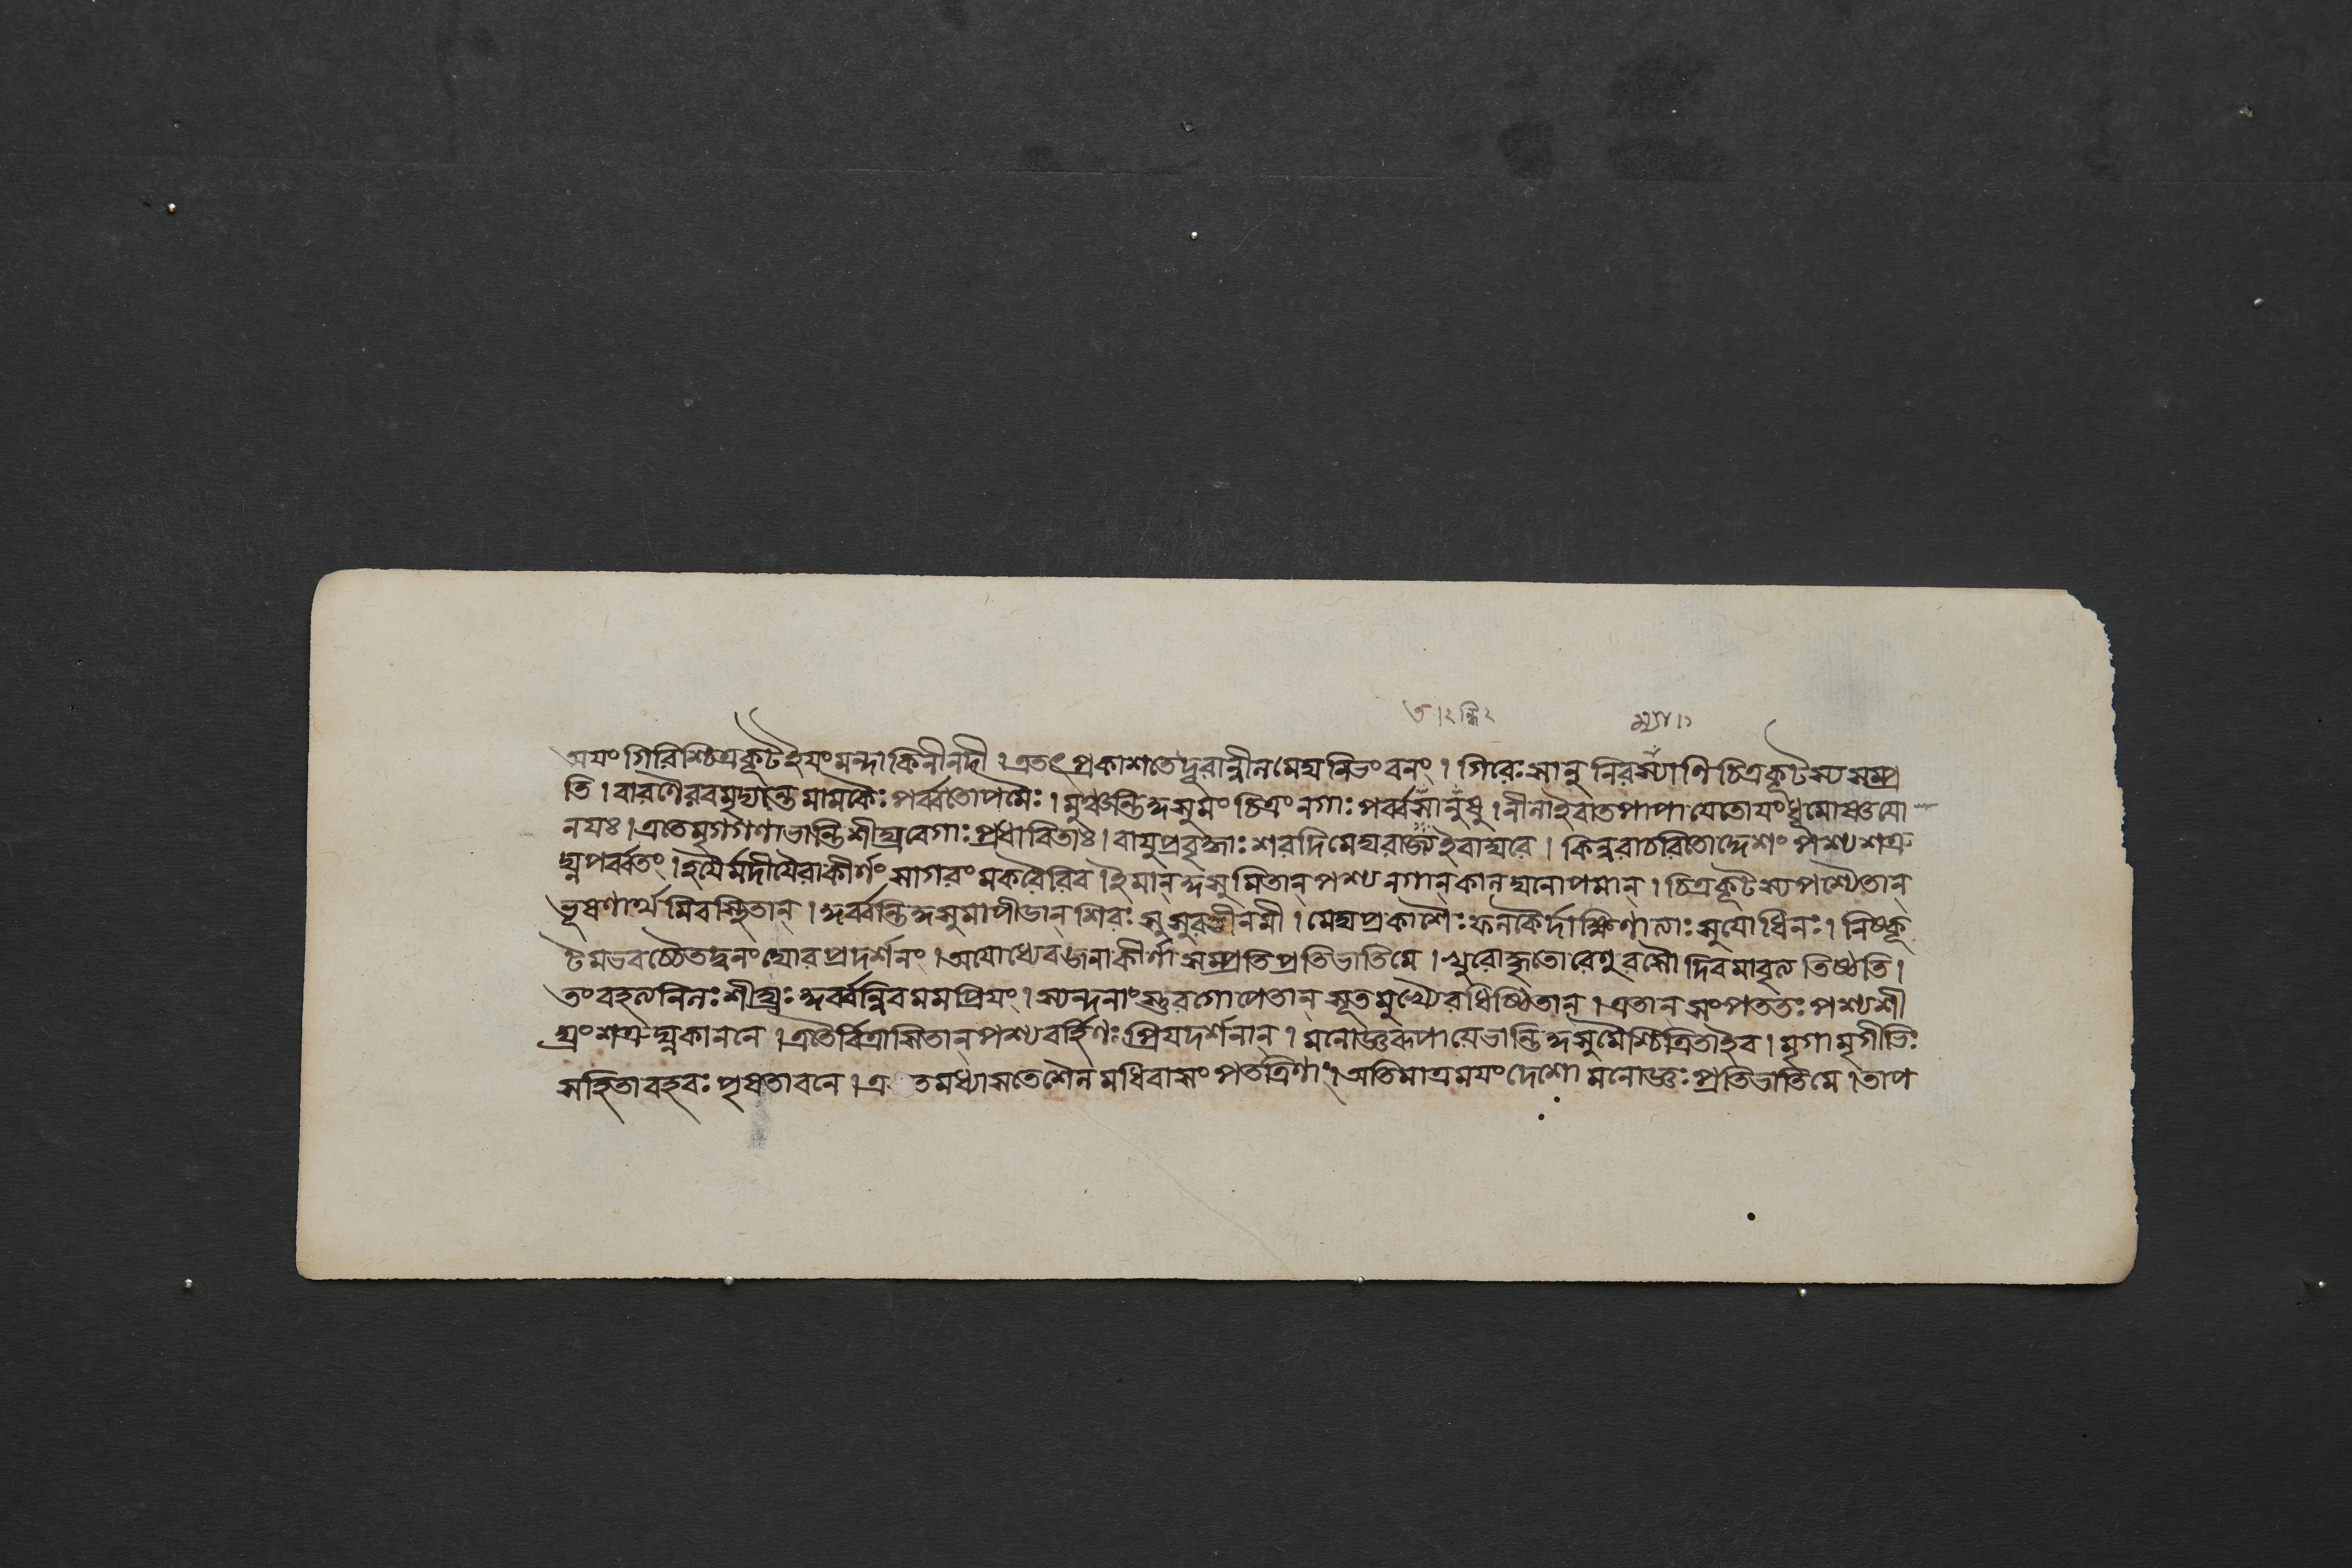 ত ।২ ন্ধি২ ম্যা ।১
অযং গিরিশ্চিত্রকূট ইযং মন্দাকিনীনদী । এতৎ প্রকাশতে দূরান্নীনমেঘনিভং বনং । গিরেঃ সানুনি রম্যাণি চিত্রকূটস্য সম্প্র
তি । বারণৈরবমৃদ্যন্তে মামকৈঃ পর্ব্বতোপমৈঃ । মুঞ্চন্তি কুসুমং চিত্রং নগাঃ পর্ব্বসানুষু । নীনা ইবাতপাপাযে তোযং ধূমোষ্ণযো
নযঃ । এতে মৃগগণা ভান্তি শীঘ্রবেগাঃ প্রধাবিতাঃ । বাযুপ্রবৃদ্ধাঃ শরদি মেঘরাজ্য ইবাম্বরে । কিন্নরাচরিতোদ্দেশং পশ্য শত্রু
ঘ্ন পর্ব্বতং । হযৈর্মদীযৈরাকীর্ণং সাগরং মকরৈরিব । ইমান্ কুসুমিতান্ পশ্য নগান্ কানঘনোপমান্ । চিত্রকূটস্য পশ্যৈতান্
ভূষণার্থমিব স্থিতান্ । কুর্ব্বন্তি কুসুমাপীডান্ শিরঃসু সুরভীনমী । মেঘপ্রকাশৈঃ ফনকৈর্দাক্ষিণাত্যাঃ সুযোধিনঃ । নিষ্কূ
টমভবচ্চৈতদ্বনং ঘোরপ্রদর্শনং । অযোধ্যেব জনাকীর্ণা সম্প্রতি প্রতিভাতি মে । খুরোদ্ধৃতো রেণুরসৌ দিবমাবৃত্য তিষ্ঠতি ।
তং বহত্যনিনঃ শীঘ্রং কুর্ব্বন্নিব মম প্রিযং । স্যন্দনাংস্তুরগোপেতান্ সূতমুখ্যৈরধিষ্ঠিতান্ । এতান্ সংপততঃ পশ্য শী
ঘ্রং শত্রুঘ্ন কাননে । এতৈর্বিত্রাসিতান্ পশ্য বর্হিণঃ প্রিযদর্শনান্ । মনোজ্ঞরূপা যে ভান্তি কুসুমৈশ্চিত্রিতা ইব । মৃগা মৃগীভিঃ
সহিতা বহবঃ পৃষতা বনে । এ তমধ্যাসতে শৈনমধিবাসং পতত্রিণাং । অতিমাত্রমযং দেশো মনোজ্ঞঃ প্রতিভাতি মে । তাপ